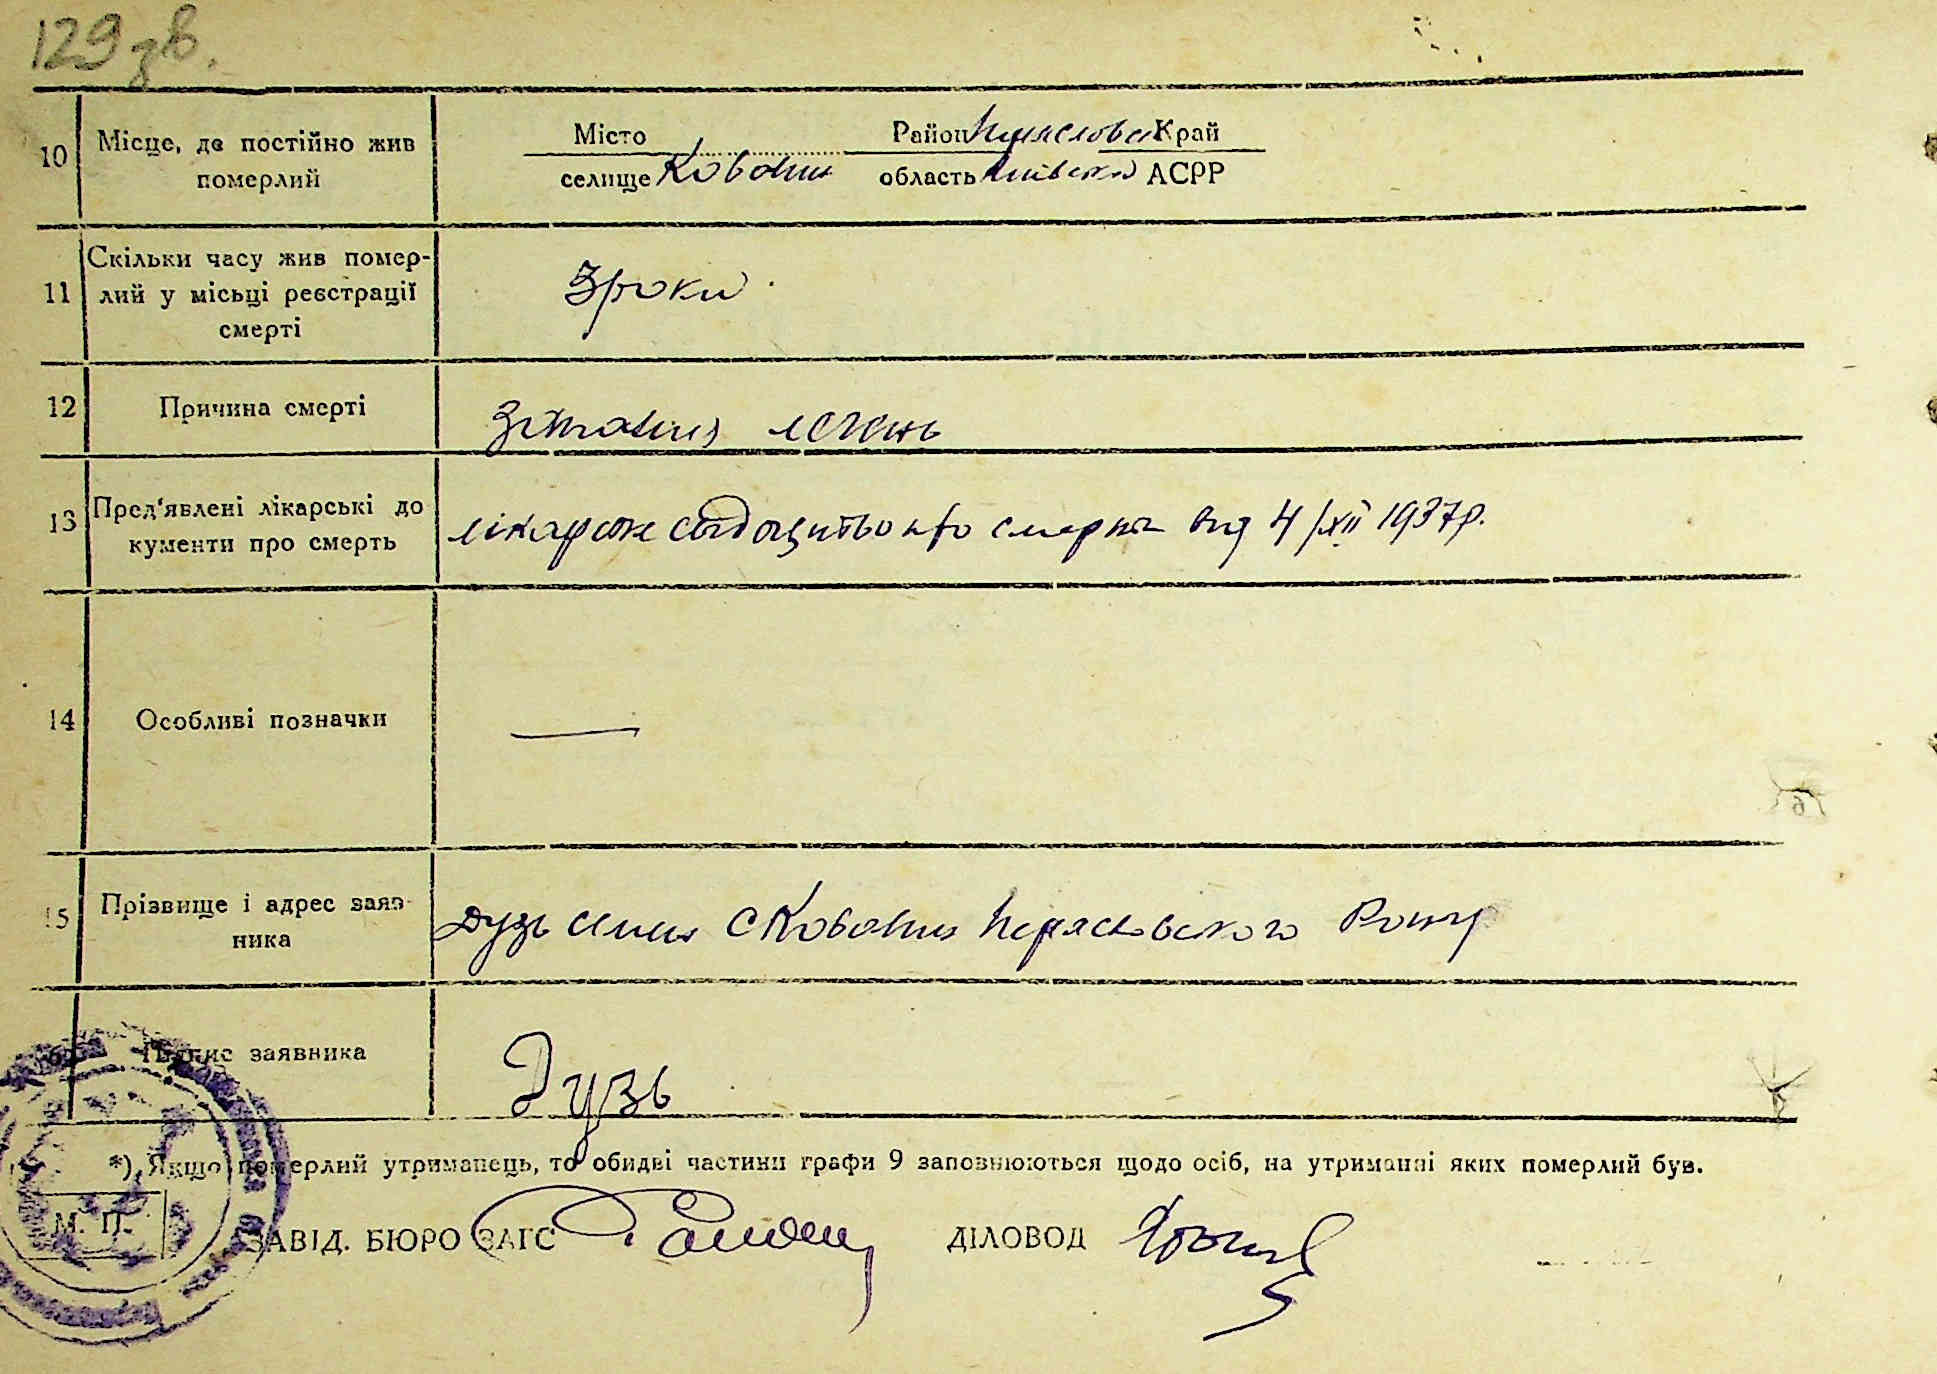 129 зв.
10 Місце, де постійно жив померлий
Місто Район Край
селище Ковалин область Київська АСРР
11 Скільки часу жив помер-
лий у місьці реєстрації
смерті
3 роки
12 Причина смерті
легень
13 Пред'явлені лікарські до
кументи про смерть
лікарске свідоцтво про смерть від 4/XII 1937р.
14 Особливі позначки
—
15 Прізвище і адрес заяв-
ника
Дузь с Ковалин Переяславского Району
Підпис заявника
Дузь
*) Якщо померлий утриманець, то обидві частини графи 9 заповнюються щодо осіб, на утриманні яких померлий був.
М. П.
ЗАВІД. БЮРО ЗАГС ДІЛОВОД